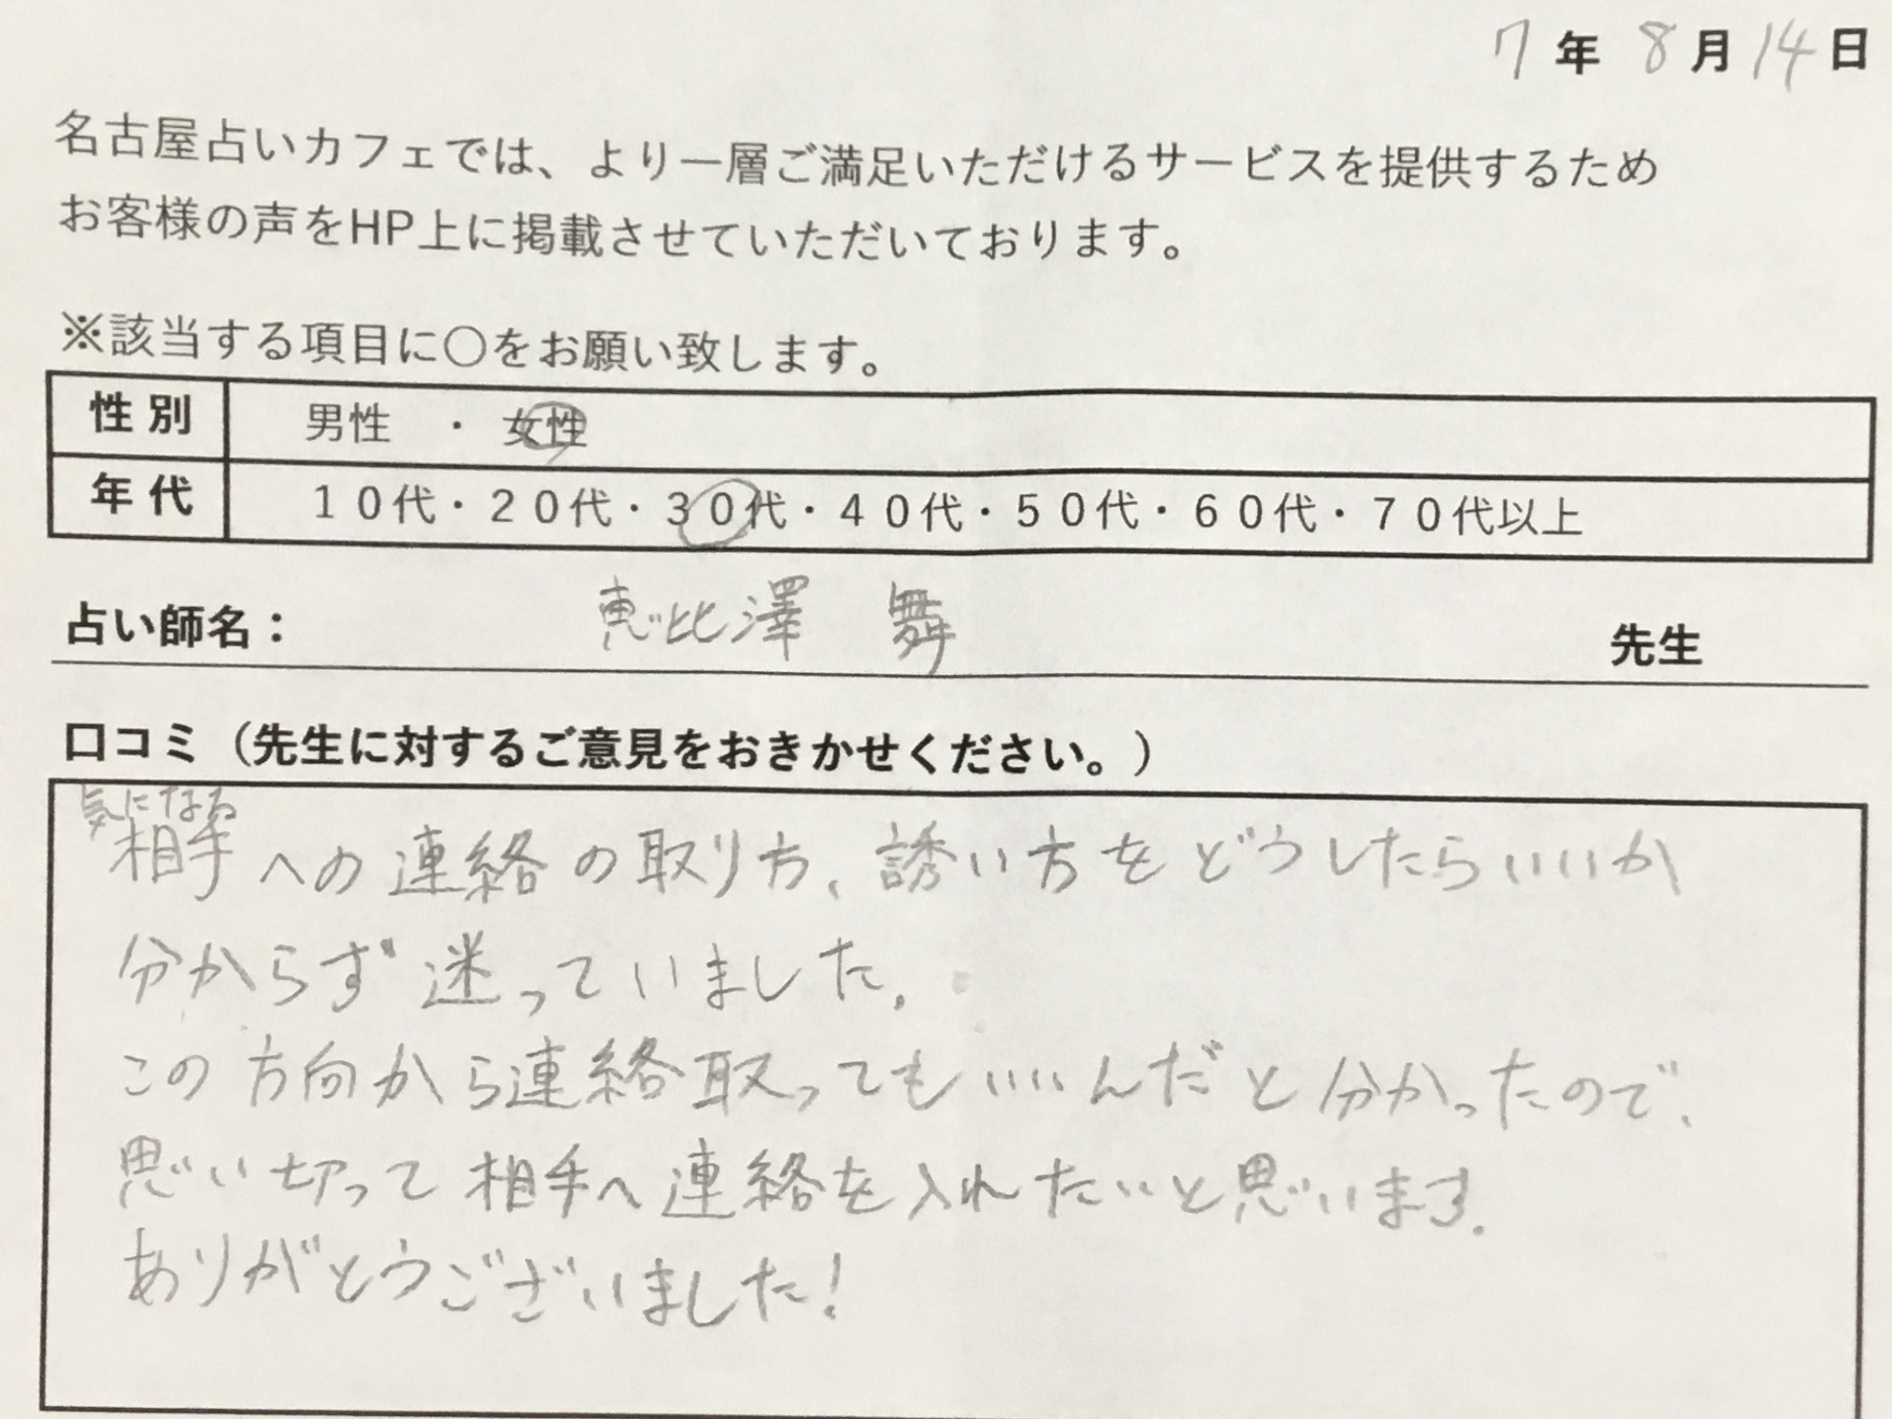 7年 8月14日
名古屋占いカフェでは、より一層ご満足いただけるサービスを提供するため
お客様の声をHP上に掲載させていただいております。
※該当する項目に〇をお願い致します。
性別 男性 ・ 女性
年代 １０代・２０代・３０代・４０代・５０代・６０代・７０代以上
占い師名： 恵比澤 舞 先生
口コミ（先生に対するご意見をおきかせください。）
気になる
相手への連絡の取り方、誘い方をどうしたらいいか
分からず迷っていました。
この方向から連絡取ってもいいんだと分かったので、
思い切って相手へ連絡を入れたいと思います。
ありがとうございました!